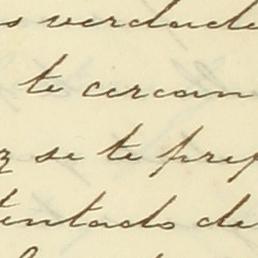 s verdade
te cercan
z se te pre
tentado de